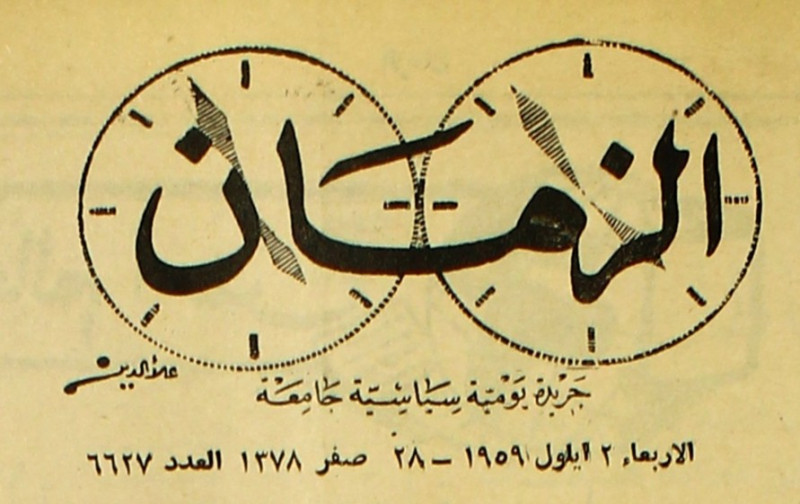 الزمان
علاء الدين
جَرِيْدَة يَوْمِيَّة سِيَاسِيَّة جَامِعَة
الاربعاء ٢ ايلول ١٩٥٩ – ٢٨ صفر ١٣٧٨ العدد ٦٦٢٧